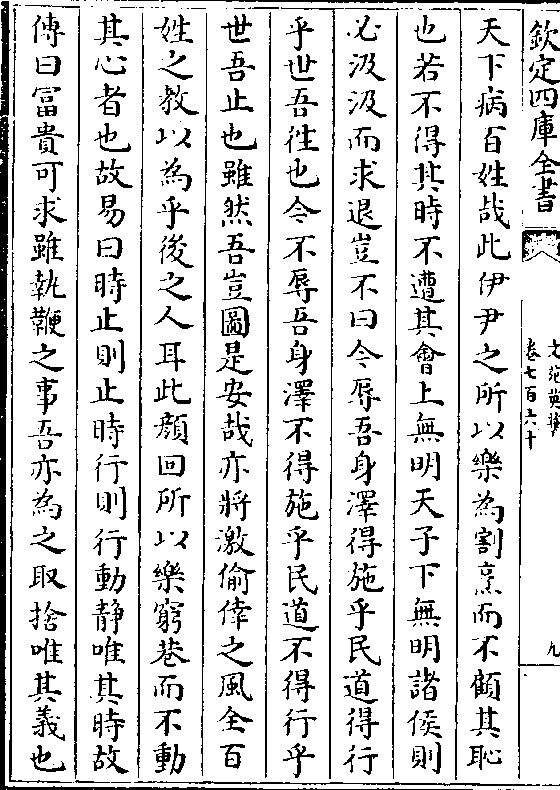 欽定四庫全書
文苑英華
卷七百六十
九
天下病百姓哉此伊尹之所以樂為割烹而不顧其恥
也若不得其時不遭其會上無明天子下無明諸侯則
必汲汲而求退豈不曰今辱吾身澤得施乎民道得行
乎世吾徃也今不辱吾身澤不得施乎民道不得行乎
世吾止也雖然吾豈圖是安哉亦將激偷倖之風全百
姓之教以為乎後之人耳此顔回所以樂窮巷而不動
其心者也故易曰時止則止時行則行動静唯其時故
傳曰冨貴可求雖執鞭之事吾亦為之取捨唯其義也